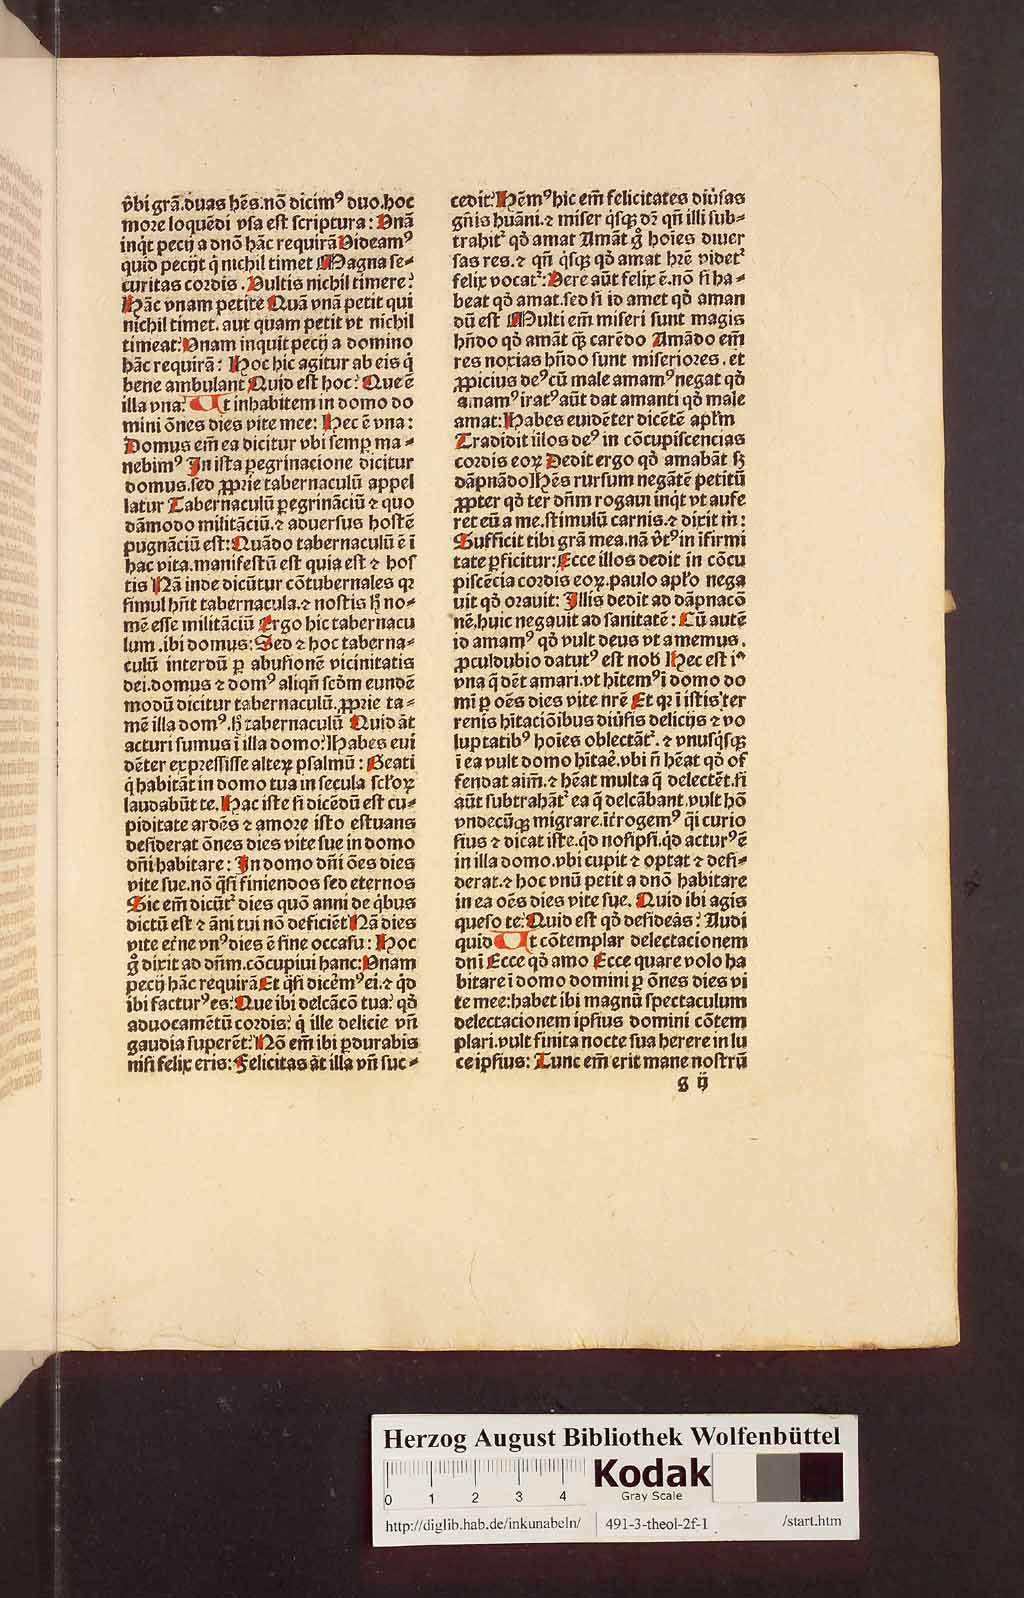 v̉bi grã.duas hẽs.nõ dicimꝰ duo.hoc
more loquẽdi vsa est scriptura: Vnã
inq̇t pecij a dnõ hãc requirã Videamꝰ
quid pecijt q̇ nichil timet Magna se-
curitas cordis. Vultis nichil timere?
Hãc vnam petite Quã vnã petit qui
nichil timet. aut quam petit vt nichil
timeat? Vnam inquit pecij a domino
hãc requirã: Hoc hic agitur ab eis q̇
bene ambulant Quid est hoc? Que ẽ
illa vna? Ut inhabitem in domo do
mini õnes dies vite mee: Hec ẽ vna:
Domus em̃ ea dicitur vbi semꝑ ma-
nebimꝰ In ista ꝑegrinacione dicitur
domus.sed ꝓprie tabernaculũ appel
latur Tabernaculũ ꝑegrinãciũ ⁊ quo
dãmodo militãciũ.⁊ aduersus hostẽ
pugnãciũ est: Quãdo tabernaculũ ẽ ĩ
hac vita.manifestũ est quia est ⁊ hos
tis Nã inde dicũtur cõtubernales qꝛ
simul hñt tabernacula.⁊ nostis h̃ no-
mẽ esse militãciũ Ergo hic tabernacu
lum.ibi domus: Sed ⁊ hoc taberna-
culũ interdũ ꝑ abusionẽ vicinitatis
dei.domus ⁊ domꝰ aliqñ scd̃m eundẽ
modũ dicitur tabernaculũ.ꝓprie ta-
mẽ illa domꝰ.h̃ tabernaculũ Quid ãt
acturi sumus ĩ illa domo? Habes eui
dẽter expressisse alteꝝ psalmũ: Beati
q̇ habitãt in domo tua in secula scl̃oꝝ
laudabũt te. Hac iste si dicẽdũ est cu-
piditate ardẽs ⁊ amore isto estuans
desiderat õnes dies vite sue in domo
dñi habitare: In domo dñi õẽs dies
vite sue.nõ q̃si finiendos sed eternos
Sic em̃ dicũt᷑ dies quõ anni de q̇bus
dictũ est ⁊ ãni tui nõ deficiẽt Nã dies
vite et̃ne vnꝰ dies ẽ sine occasu: Hoc
g̊ dixit ad dñm.cõcupiui hanc: Vnam
pecij hãc requirã Et q̃si dicem̉ꝰ ei.⁊ q̇d
ibi facturꝰ es? Que ibi delcãcõ tua? qď
aduocamẽtũ cordis? q̇ ille delicie vñ
gaudia superẽt? Nõ em̃ ibi ꝑdurabis
nisi felix eris: Felicitas ãt illa vñ suc-
cedit? Hẽmꝰ hic em̃ felicitates diu̇sas
gñis huãni.⁊ miser q̇sqꝫ dꝛ qñ illi sub-
trahit᷑ qď amat Amãt g̊ hoĩes diuer
sas res.⁊ qñ q̇sqꝫ qď amat hr̃e videt᷑
felix vocat᷑: Vere aũt felix ẽ.nõ si ha-
beat qď amat.sed si id amet qď aman
dũ est Multi em̃ miseri sunt magis
hñdo qď amãt q̃ꝫ carẽdo Amãdo em̃
res noxias hñdo sunt miseriores. et
ꝓpicius deꝰ cũ male amamꝰ negat qď
amamꝰ iratꝰ aũt dat amanti qď male
amat: Habes euidẽter dicẽtẽ apl̃m
Tradidit illos deꝰ in cõcupiscencias
cordis eoꝝ Dedit ergo qď amabãt sꝫ
dãpnãdo Hẽs rursum negãtẽ petitũ
ꝓpter qď ter dñm rogaui inq̇t vt aufe
ret eũ a me.stimulũ carnis.⁊ dixit m̃:
Sufficit tibi grã mea.nã v̉tꝰ in ĩfirmi
tate ꝑficitur: Ecce illos dedit in cõcu
piscẽcia cordis eoꝝ.paulo apl̃o nega
uit qď orauit: Illis dedit ad dãpnacõ
nẽ.huic negauit ad sanitatẽ: Cũ autẽ
id amamꝰ qď vult deus vt amemus.
ꝓculdubio daturꝰ est nob̃ Hec est iᵃ
vna q̃ dẽt amari.vt hĩtemꝰ ĩ domo do
mĩ ꝑ oẽs dies vite nr̃e Et qꝛ ĩ istis ter
renis hĩtaciõibus diu̇sis delicijs ⁊ vo
luptatibꝰ hoĩes oblectãt᷑. ⁊ vnusq̇sqꝫ
ĩ ea vult domo hĩtare.vbi ñ hẽat qď of
fendat aim̃.⁊ hẽat multa q̃ delectẽt.si
aũt subtrahãt᷑ ea q̃ delcãbant.vult hõ
vndecũqꝫ migrare.ĩt̃rogemꝰ q̃i curio
sius ⁊ dicat iste.q̇d nosipsi.q̇d acturꝰ ẽ
in illa domo.vbi cupit ⁊ optat ⁊ desi-
derat.⁊ hoc vnũ petit a dnõ habitare
in ea oẽs dies vite sue. Quid ibi agis
queso te? Quid est qď desideãs? Audi
quid Ut cõtemplar delectacionem
dnĩ Ecce qď amo Ecce quare volo ha
bitare ĩ domo domini ꝑ õnes dies vi
te mee:habet ibi magnũ spectaculum
delectacionem ipsius domini cõtem
plari.vult finita nocte sua herere in lu
ce ipsius: Tunc em̃ erit mane nostrũ
g ij
Herzog August Bibliothek Wolfenbüttel
0 1 2 3 4
Kodak
Gray Scale
http://diglib.hab.de/inkunabeln/ 491-3-theol-2f-1 /start.htm